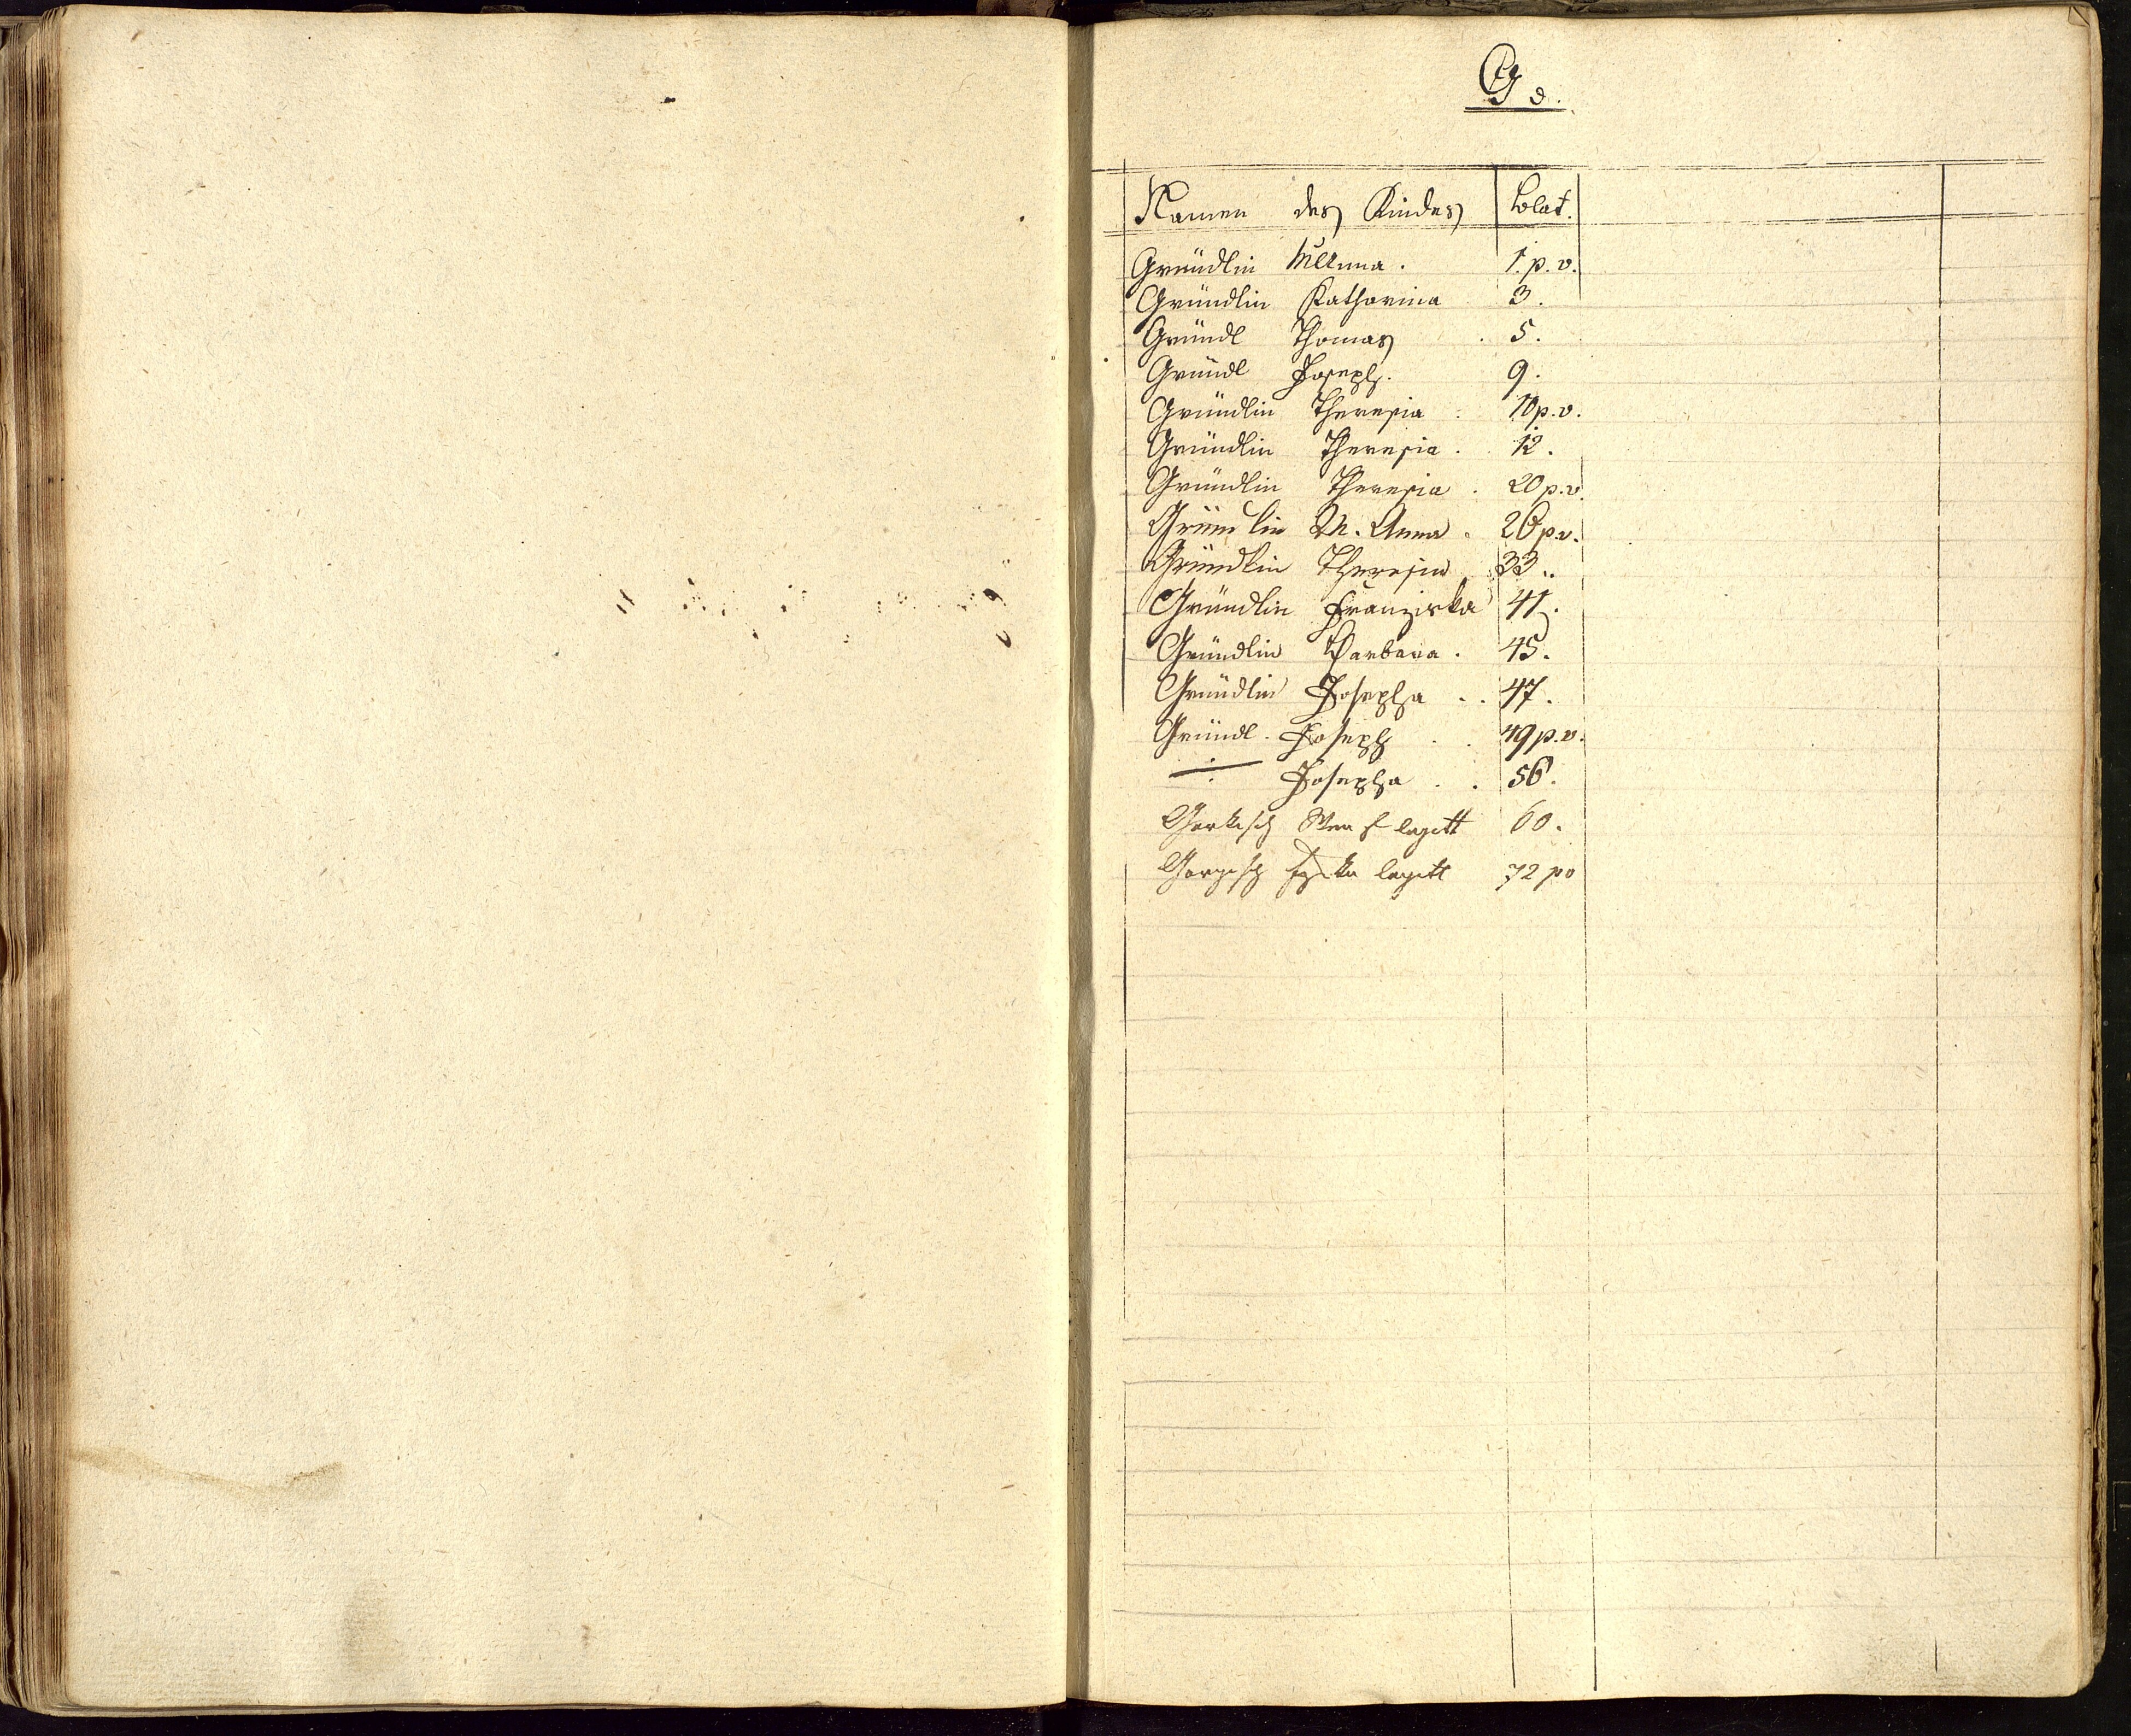 G
Namen des Kindes blat.
Gründlin M Anna. 1. p. v.
Gründlin Katharina 3.
Gründl Thomas . 5.
Gründl Joseph. 9.
Gründlin Theresia . 10 p. v.
Gründlin Theresia . 12.
Gründlin Theresia . 20 p. v.
Gründlin M. Anna . 26 p. v.
Gründlin Theresia . 33.
Gründlin Franziska 41.
Gründlin Barbara . 45.
Gründlin Josepha . . 47.
Gründl. Joseph . . 49 p. v.
Josepha . . 56.
legitt 60.
legitt 72 pv